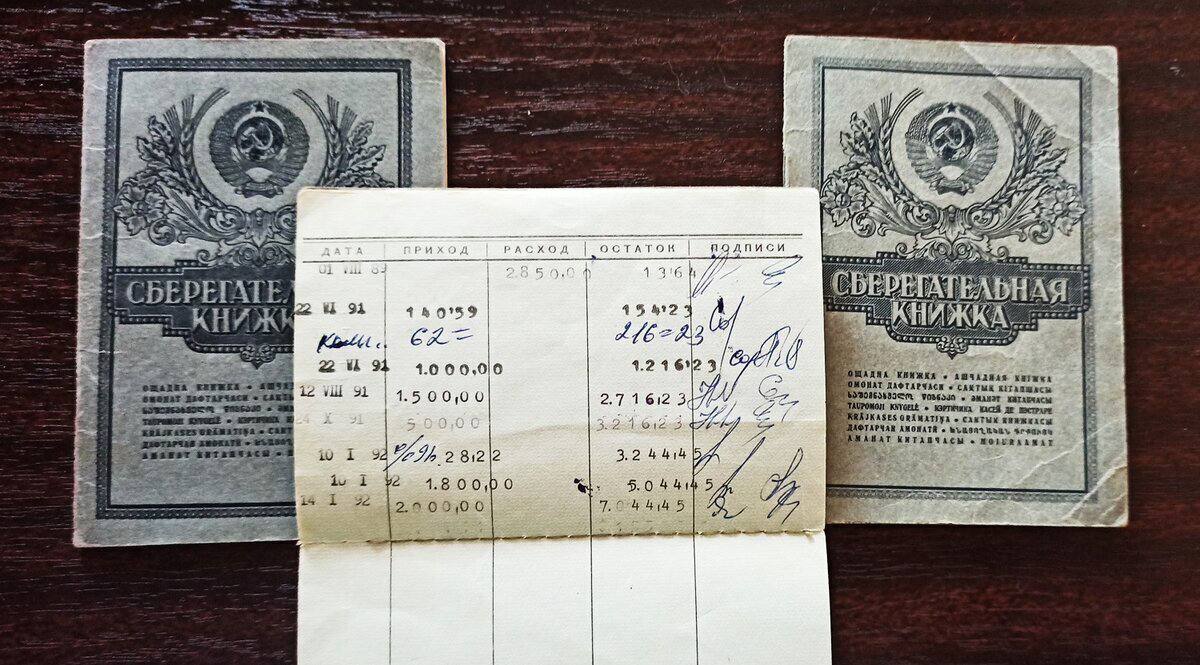 СБЕРЕГАТЕЛЬ
КНИЖК
ОЩАДНА КНИЖКА • АШЧАДНАЯ
ОМОНАТ ДАФТАРЧАСИ • САКТЫК
TAUPOMOJI KNYGELĖ • КЭРТИЧИКА
KRĀJKASES GRĀMATIŅA • САКТЫК
ДАФТАРЧАИ АМОНАТӢ •
АМАНАТ КИТАПЧАСЫ •
ДАТА ПРИХОД РАСХОД ОСТАТОК ПОДПИСИ
01 VIII 89 2850,00 13,64
22 VI 91 140,59 154,23
комп. 62= 216=23
22 VI 91 1.000,00 1.216,23
12 VIII 91 1.500,00 2.716,23
24 X 91 500,00 3.216,23
10 I 92 %91г. 28,22 3.244,45
10 I 92 1.800,00 5.044,45
14 I 92 2.000,00 7.044,45
СБЕРЕГАТЕЛЬНАЯ
КНИЖКА
ОЩАДНА КНИЖКА • АШЧАДНАЯ КНІЖКА
ОМОНАТ ДАФТАРЧАСИ • САКТЫК КІТАПШАСЫ
ӘМАНӘТ КИТАБЧАСЫ
TAUPOMOJI KNYGELĖ • КЭРТИЧИКА КАСЕЙ ДЕ ПЭСТРАРЕ
KRĀJKASES GRĀMATIŅA • САКТЫК КНИЖКАСЫ
ДАФТАРЧАИ АМОНАТӢ •
АМАНАТ КИТАПЧАСЫ • HOIURAAMAT